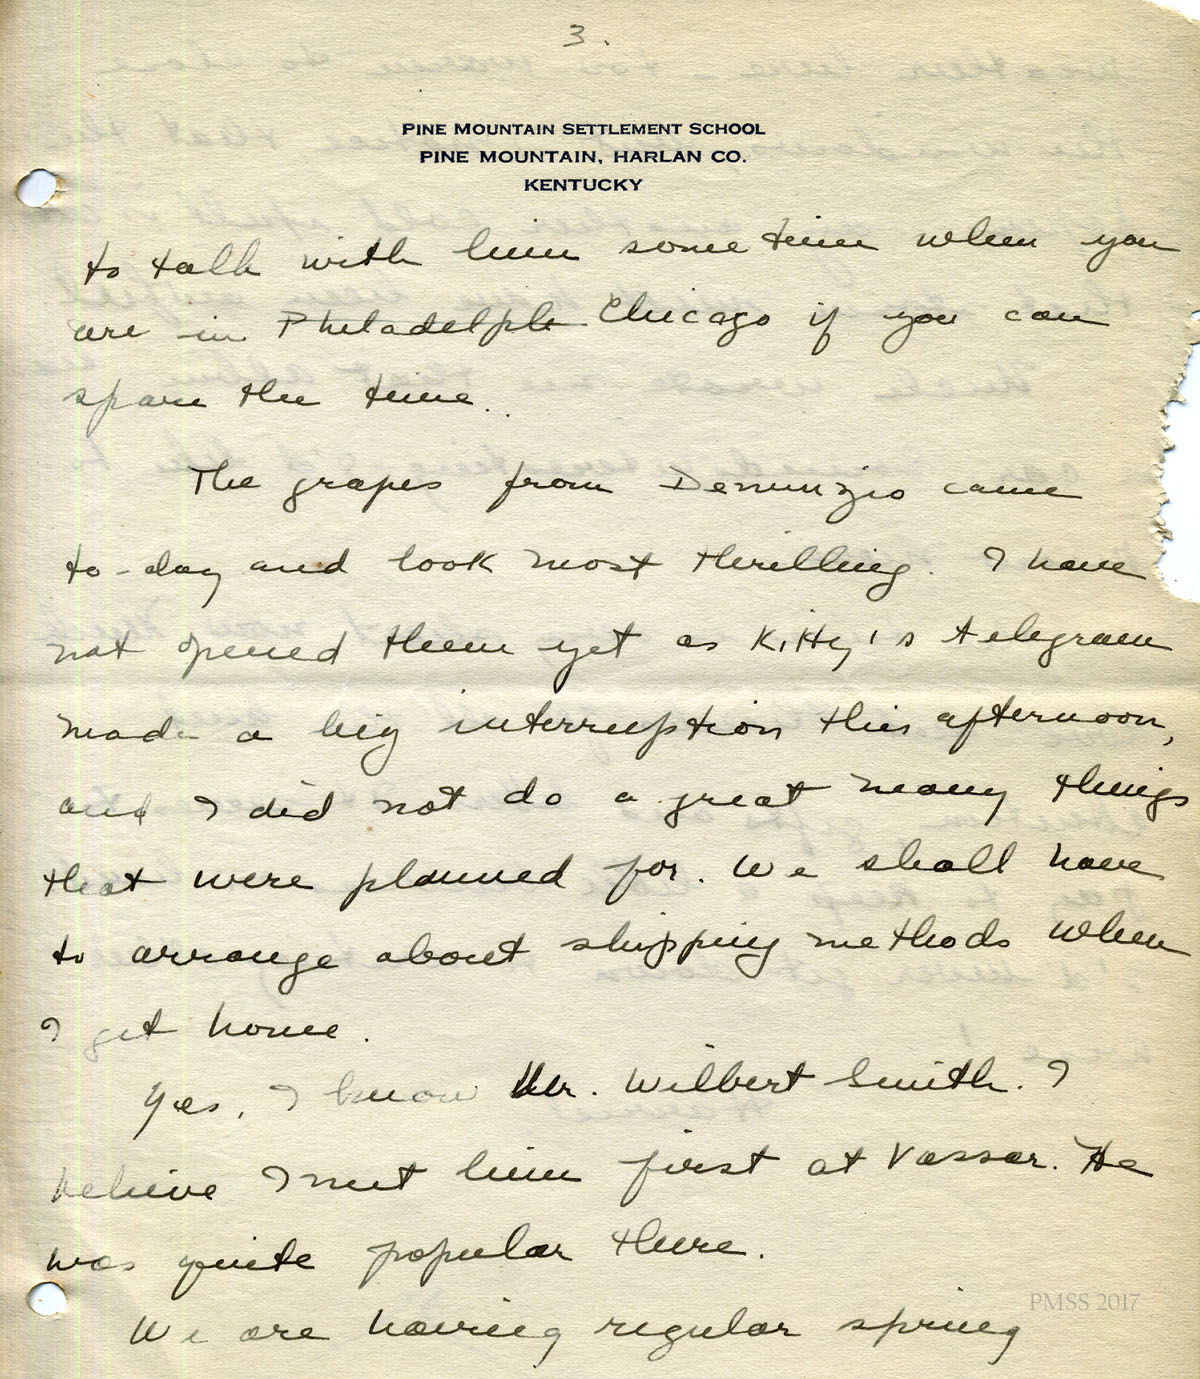 3.
PINE MOUNTAIN SETTLEMENT SCHOOL
PINE MOUNTAIN, HARLAN CO.
KENTUCKY
to talk with him some time when you
are in Philadelph Chicago if you can
spare the time.
The grapes from Denunzio came
to-day and look most thrilling. I have
not opened them yet as Kitty's telegram
made a big interruption this afternoon,
and I did not do a great many things
that were planned for. We shall have
to arrange about shipping methods when
I get home.
Yes, I know Mr. Wilbert Smith. I
believe I met him first at Vassar. He
was quite popular there.
We are having regular spring
PMSS 2017